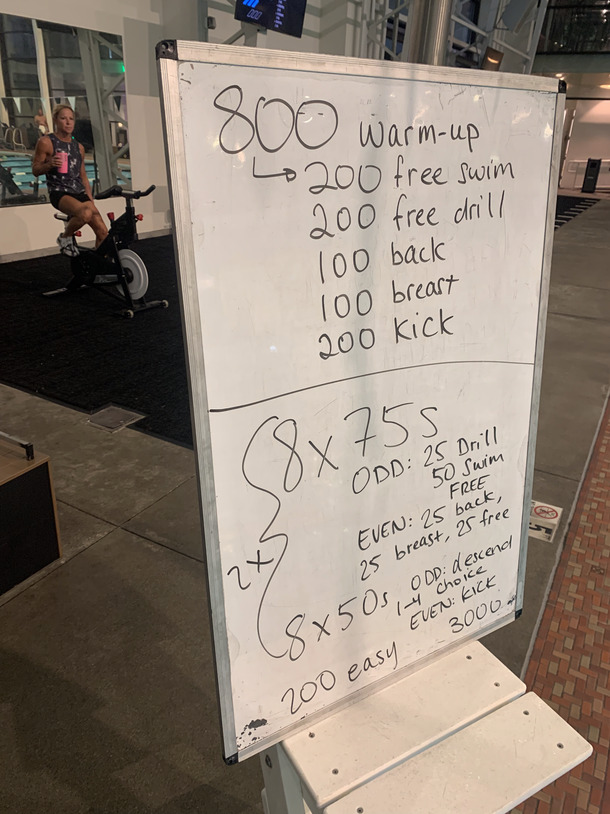 800 warm-up
↳ 200 free swim
200 free drill
100 back
100 breast
200 kick
2x
8 x 75s
ODD: 25 Drill
50 swim
FREE
EVEN: 25 back,
25 breast, 25 free
8 x 50s ODD: descend
1-4 choice
EVEN: KICK
200 easy 3000